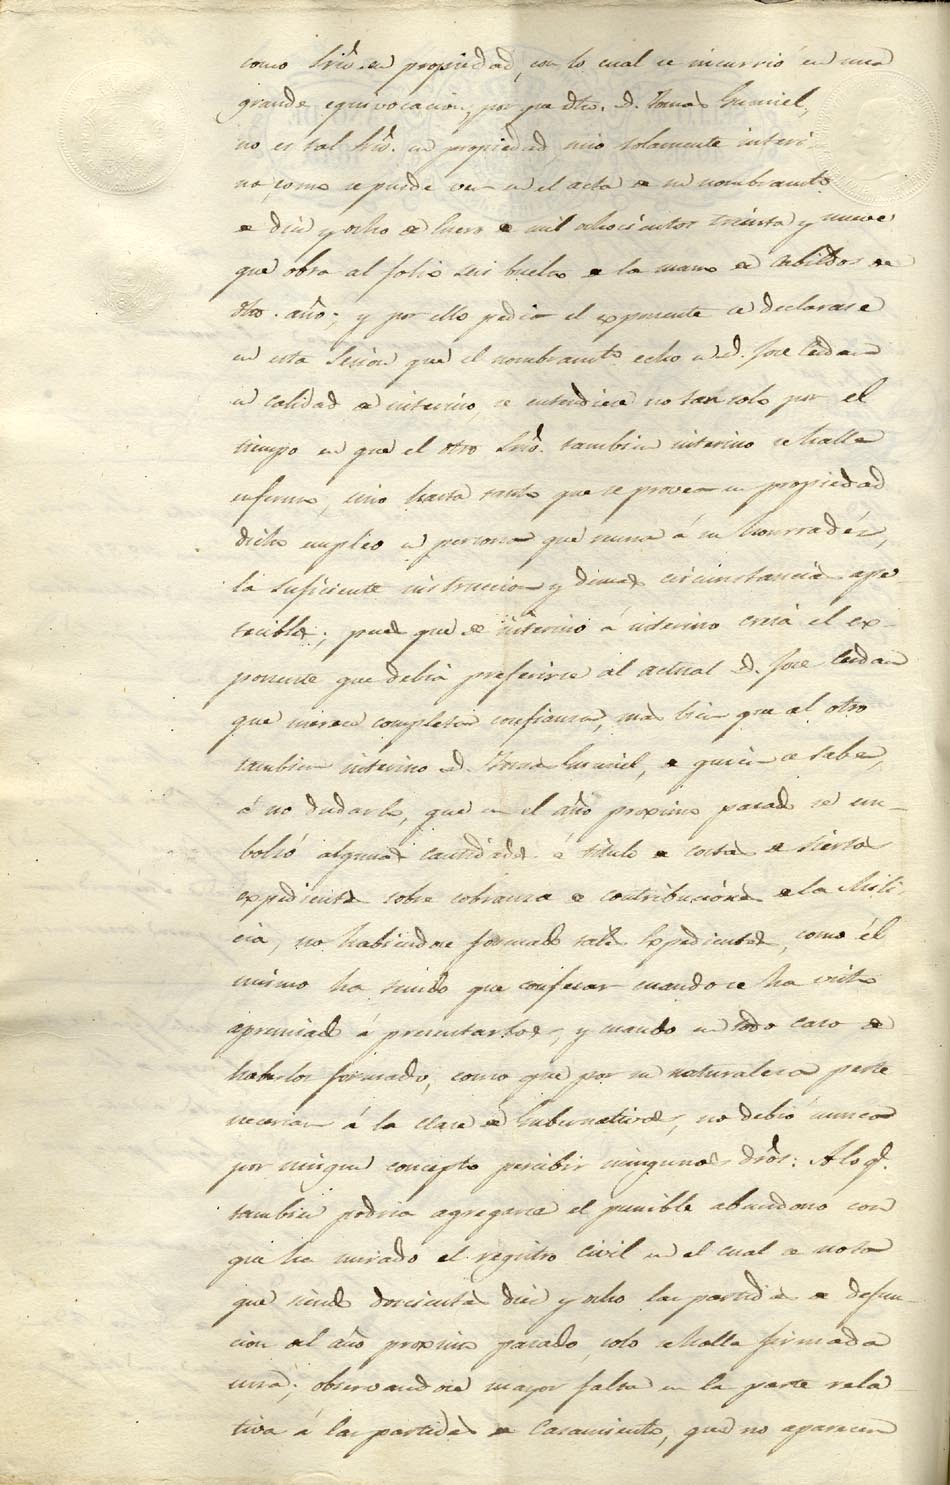 como Srio. en propiedad, con lo cual se incurrió en una
grande equivocacion, por que dho. D. Tomas Gumiel,
no es tal Srio. en propiedad, sino solamente interi-
no, como se puede ver en el acta de su nombramto.
de diez y ocho de Enero de mil ochocientos treinta y nueve
que obra al folio seis buelto de la mano de Cabildos de
dho. año; y por ello pedia el exponente se declarase
en esta Sesion que el nombramto. echo en D. Jose
en calidad de interino, se entendiese no tan solo por el
tiempo en que el otro Srio. tambien interino se halle
enfermo, sino hasta tanto que se provea en propiedad
dicho empleo en persona que reuna á su honradéz,
la suficiente instruccion y demas circunstancias ape-
tecibles; pues que de interino á interino creia el ex-
ponente que debia preferirse al actual D. Jose
que merece completa confianza, mas bien que al otro
tambien interino D. Tomas Gumiel, de quien se sabe,
á no dudarlo, que en el año proximo pasado se em-
bolsó algunas cantidades á titulo de costas de siertos
expedientes sobre cobranza de contribuciones de la Mili-
cia, no habiendose formado tales Expedientes, como él
mismo ha tenido que confesar cuando se ha visto
apremiado á presentarlos, y cuando en todo caso de
haberlos formado, como que por su naturaleza perte-
necerian á la clase de Gubernativos, no debió nunca
por ningun concepto percibir ningunos dros: A lo q.
tambien podria agregarse el punible abandono con
que ha mirado el registro civil en el cual se nota
que siendo doscientas diez y ocho las partidas de defun-
cion del año proximo pasado, solo se halla firmada
una; observandose mayor falta en la parte rela-
tiva á las partidas de Casamiento, que no aparecen